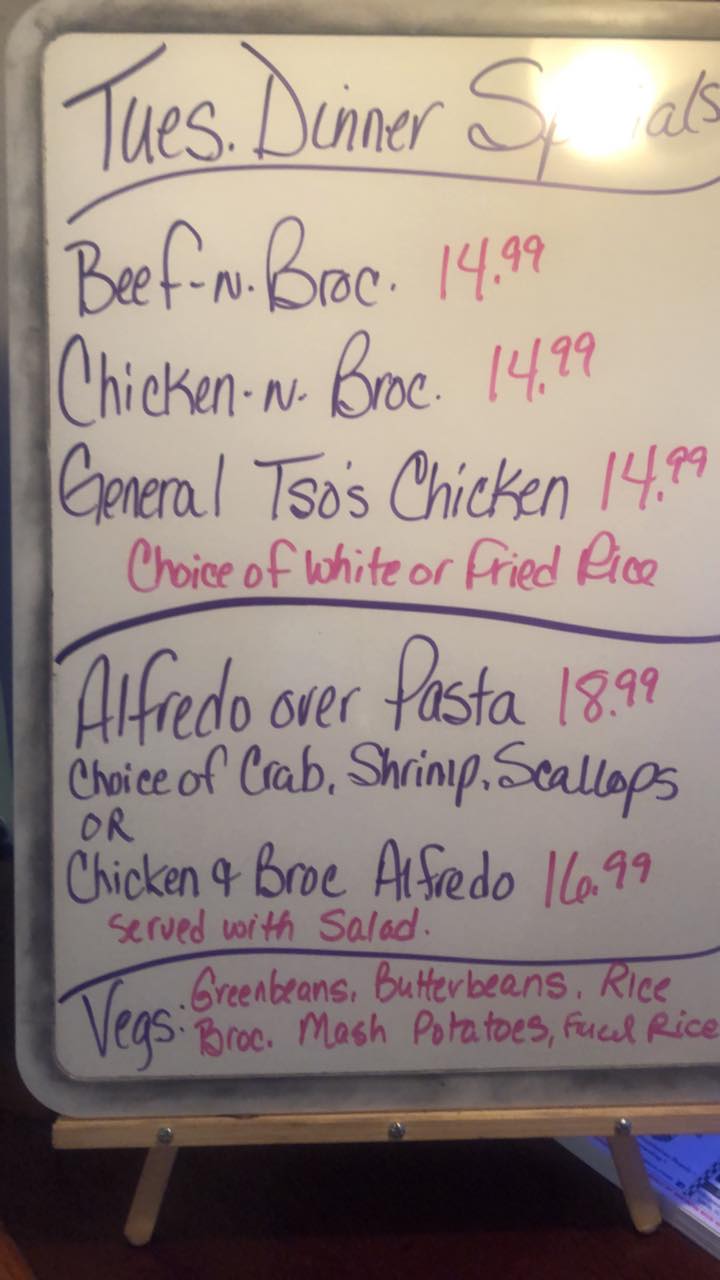 Tues. Dinner Specials
Beef-n-Broc. 14.99
Chicken-n-Broc. 14.99
General Tso's Chicken 14.99
Choice of White or Fried Rice
Alfredo over Pasta 18.99
Choice of Crab, Shrimp, Scallops
OR
Chicken & Broc Alfredo 16.99
Served with Salad.
Vegs: Greenbeans, Butterbeans, Rice
Broc. Mash Potatoes, Fried Rice